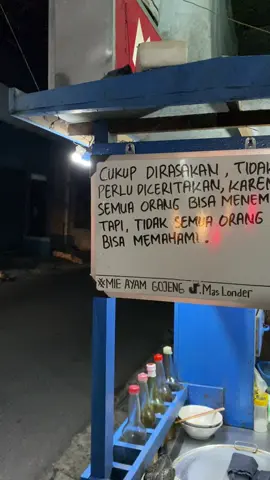 CUKUP DIRASAKAN, TIDAK
PERLU DICERITAKAN, KAREN
SEMUA ORANG BISA MENEM
TAPI, TIDAK SEMUA ORANG
BISA MEMAHAMI.
※MIE AYAM GOJENG Jl.Mas Londer